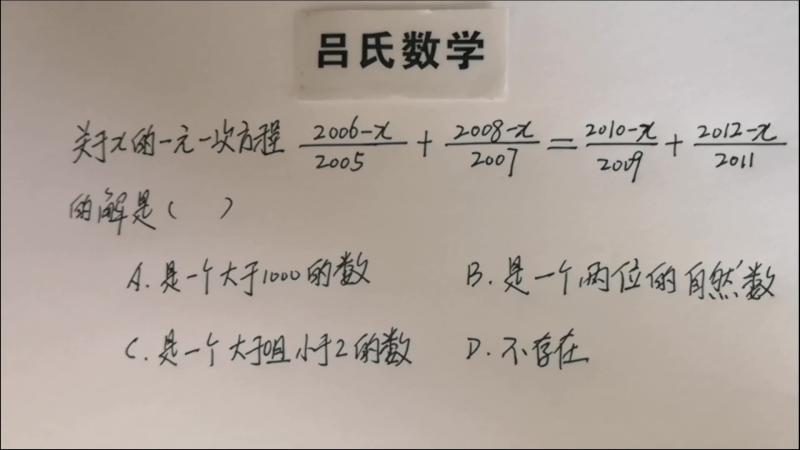 吕氏数学
关于x的一元一次方程 (2006-x)/2005 + (2008-x)/2007 = (2010-x)/2009 + (2012-x)/2011
的解是( )
A. 是一个大于1000的数 B. 是一个两位的自然数
C. 是一个大于0且小于2的数 D. 不存在